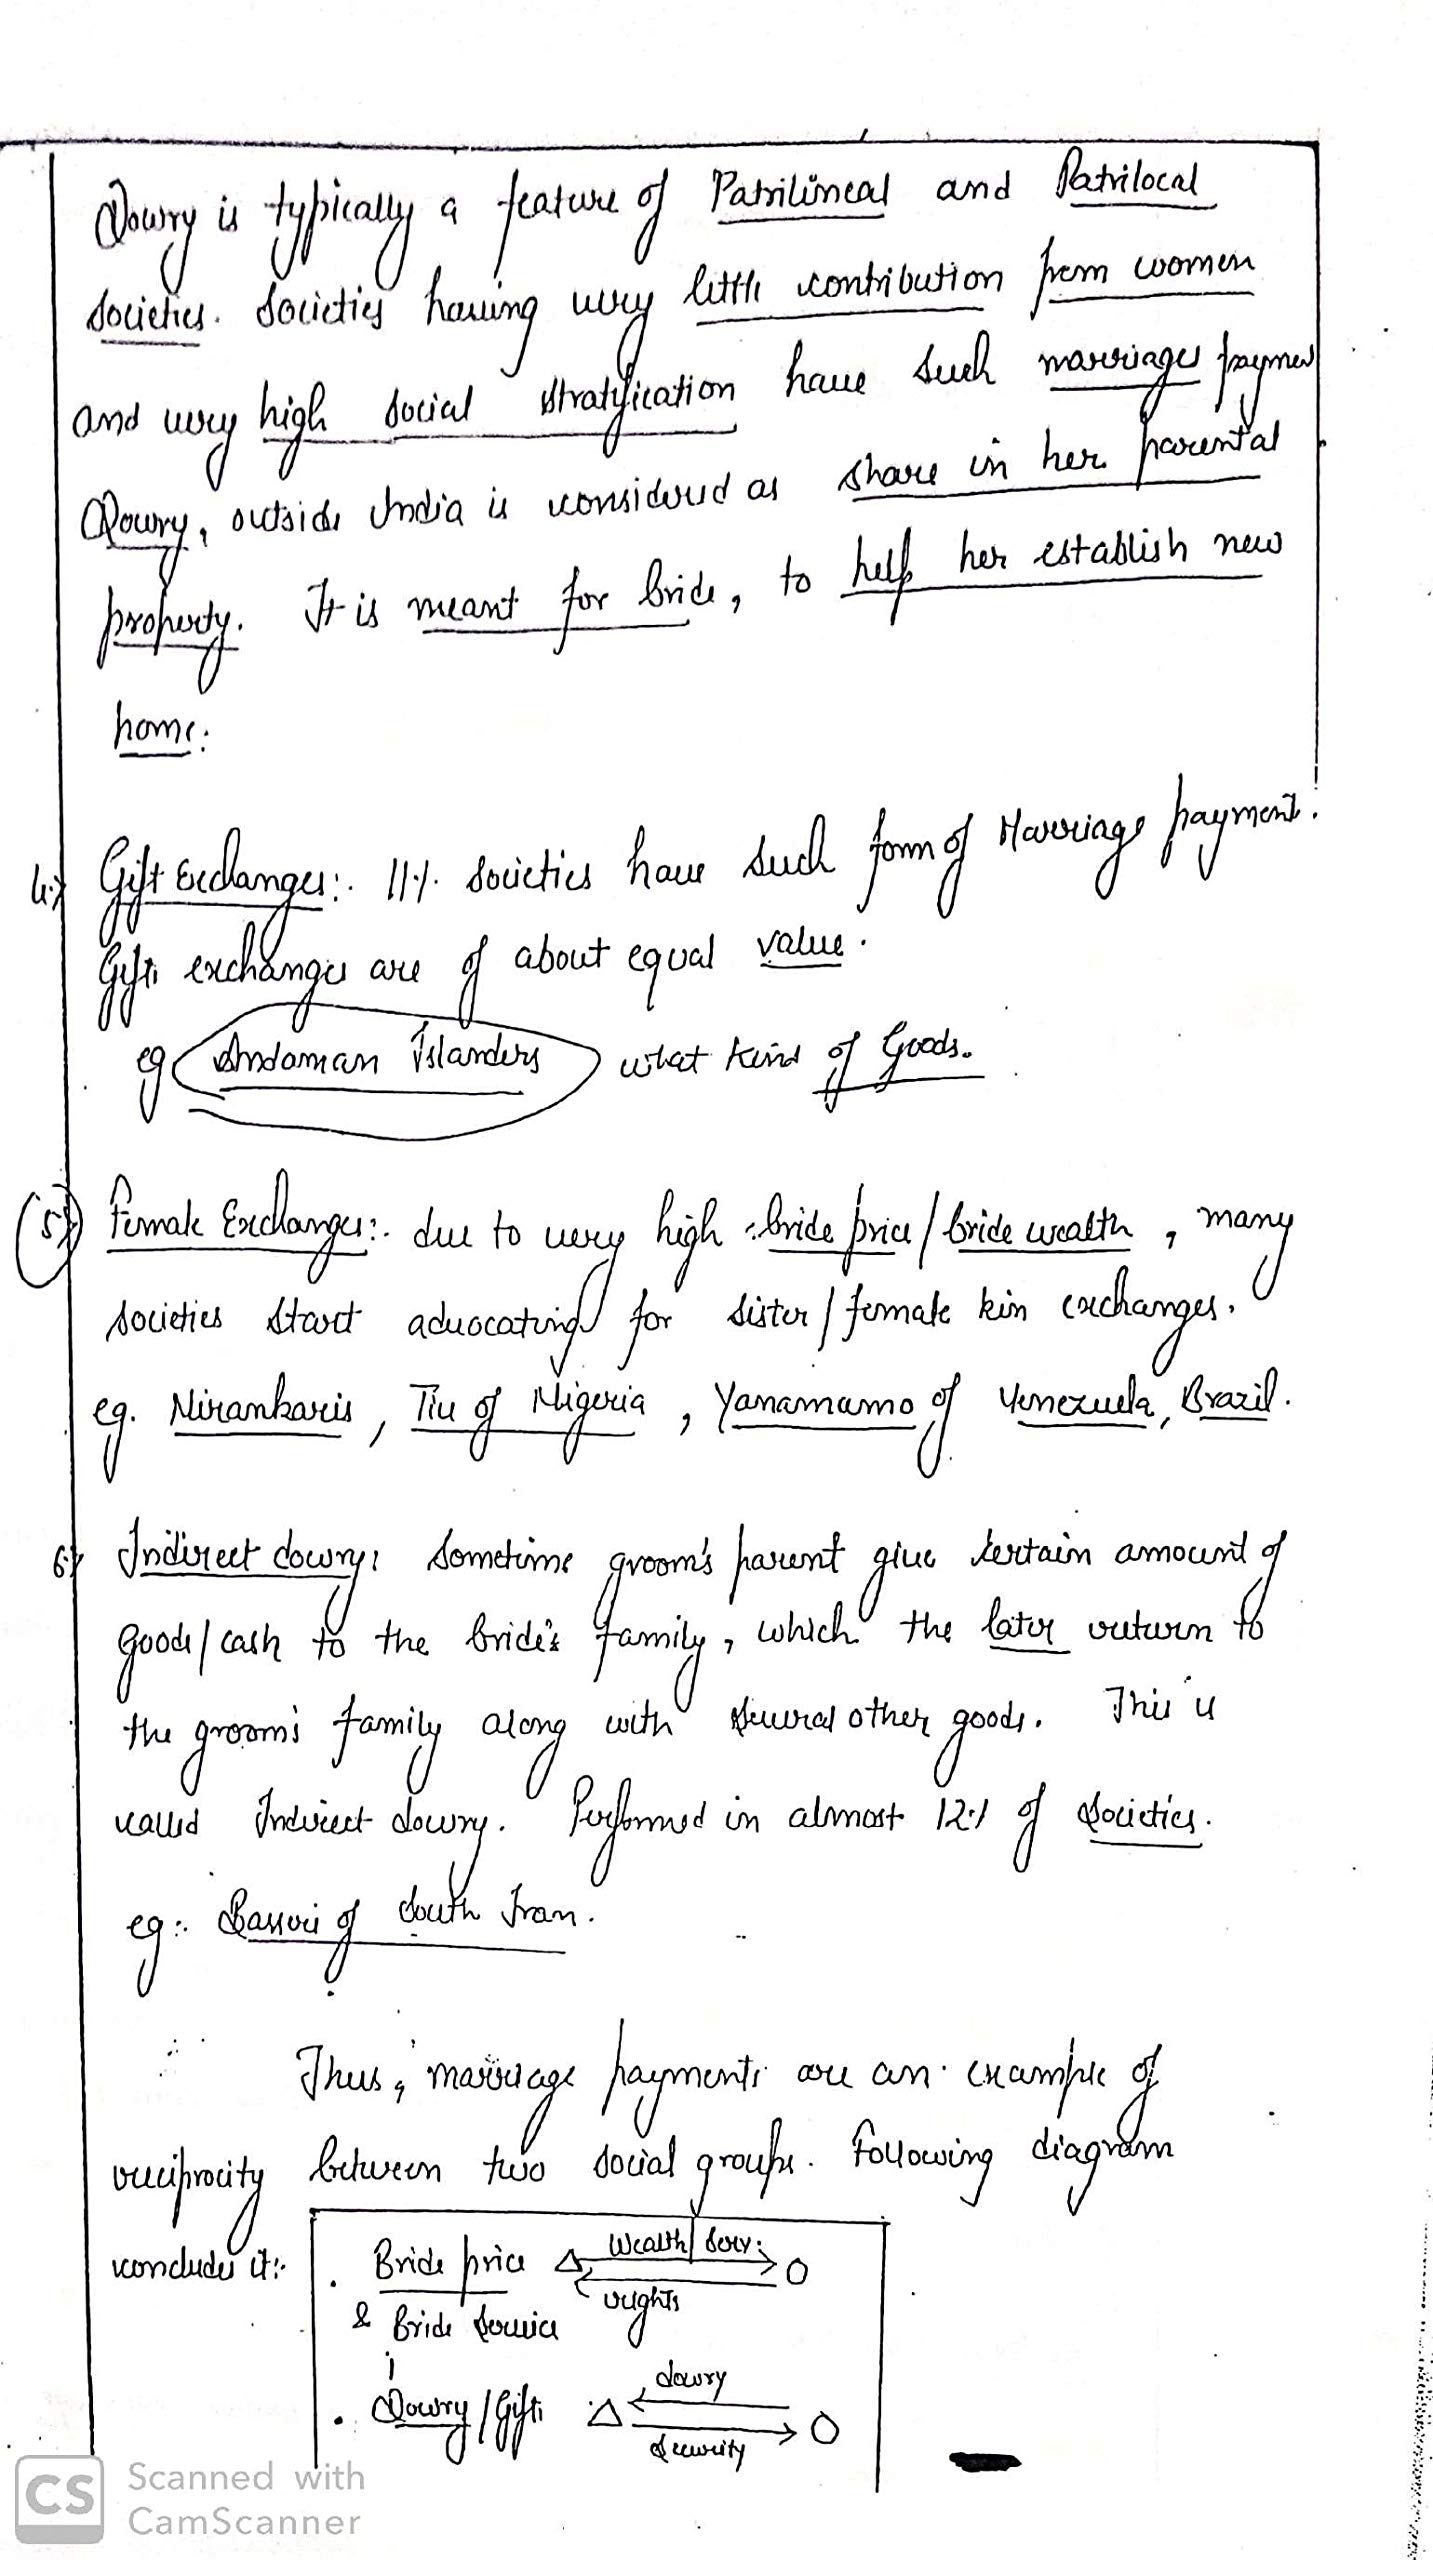 Dowry is typically a feature of Patrilineal and Patrilocal
Societies. Societies having very little contribution from women
and very high social stratification have such marriages paymen
Dowry, outside India is considered as share in her parental
property. It is meant for bride, to help her establish new
home.
4.> Gift Exchanges:. 11%. Societies have such form of Marriage payment.
Gifts exchanges are of about equal value.
eg Andaman Islanders what kind of Goods.
(5) Female Exchanges:. due to very high bride price / bride wealth, many
societies start advocating for sister / female kin exchanges.
eg. Nirankaris, Tiv of Nigeria, Yanamamo of Venezuela, Brazil.
6.> Indirect dowry: Sometime groom's parent give certain amount of
goods / cash to the bride's family, which the later return to
the groom's family along with several other goods. This is
called Indirect dowry. Performed in almost 12% of Societies.
eg:. Basseri of South Iran.
Thus, marriage payments are an example of
reciprocity between two social groups. Following diagram
concludes it:.
. Bride price △ Wealth / Serv. O
& Bride Service rights
. Dowry / Gifts △ dowry O
Security
CS Scanned with
CamScanner